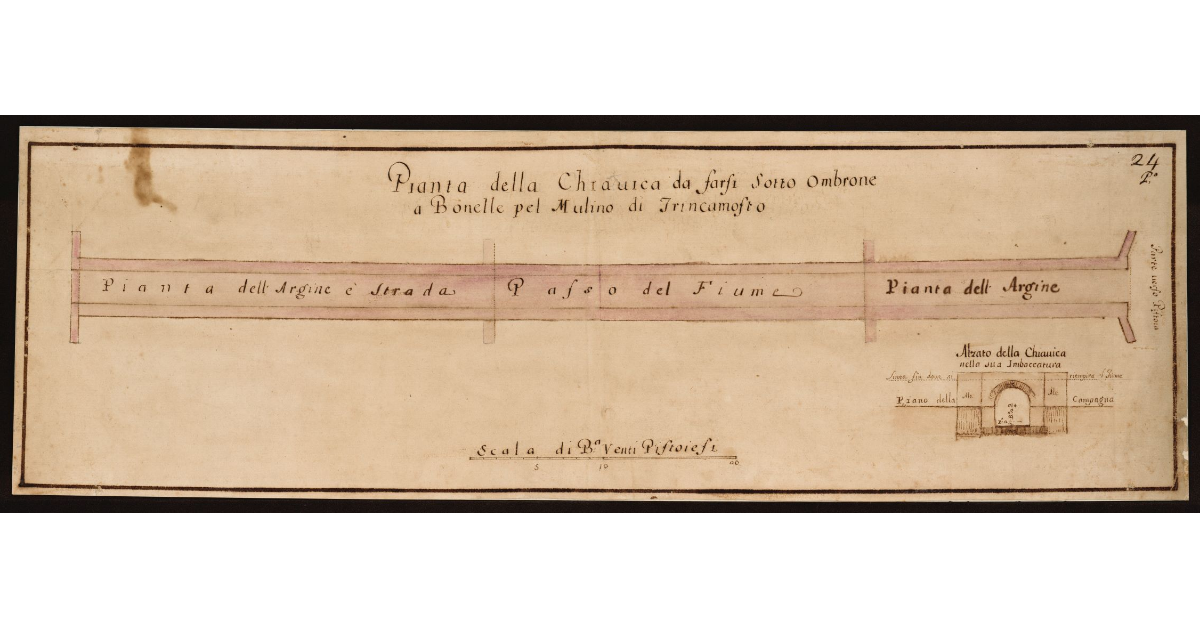 24
P.º
Pianta della Chiauica da farsi Sotto Ombrone
a Bonelle pel Mulino di Trincamosto
Pianta dell' Argine è Strada
Passo del Fiume
Pianta dell Argine
Parte uerso Pistoia
Alzato della Chiauica
nella sua Imboccatura
Piano della
Campagna
Scala di B.ª Venti Pistoiesi
5 10 20